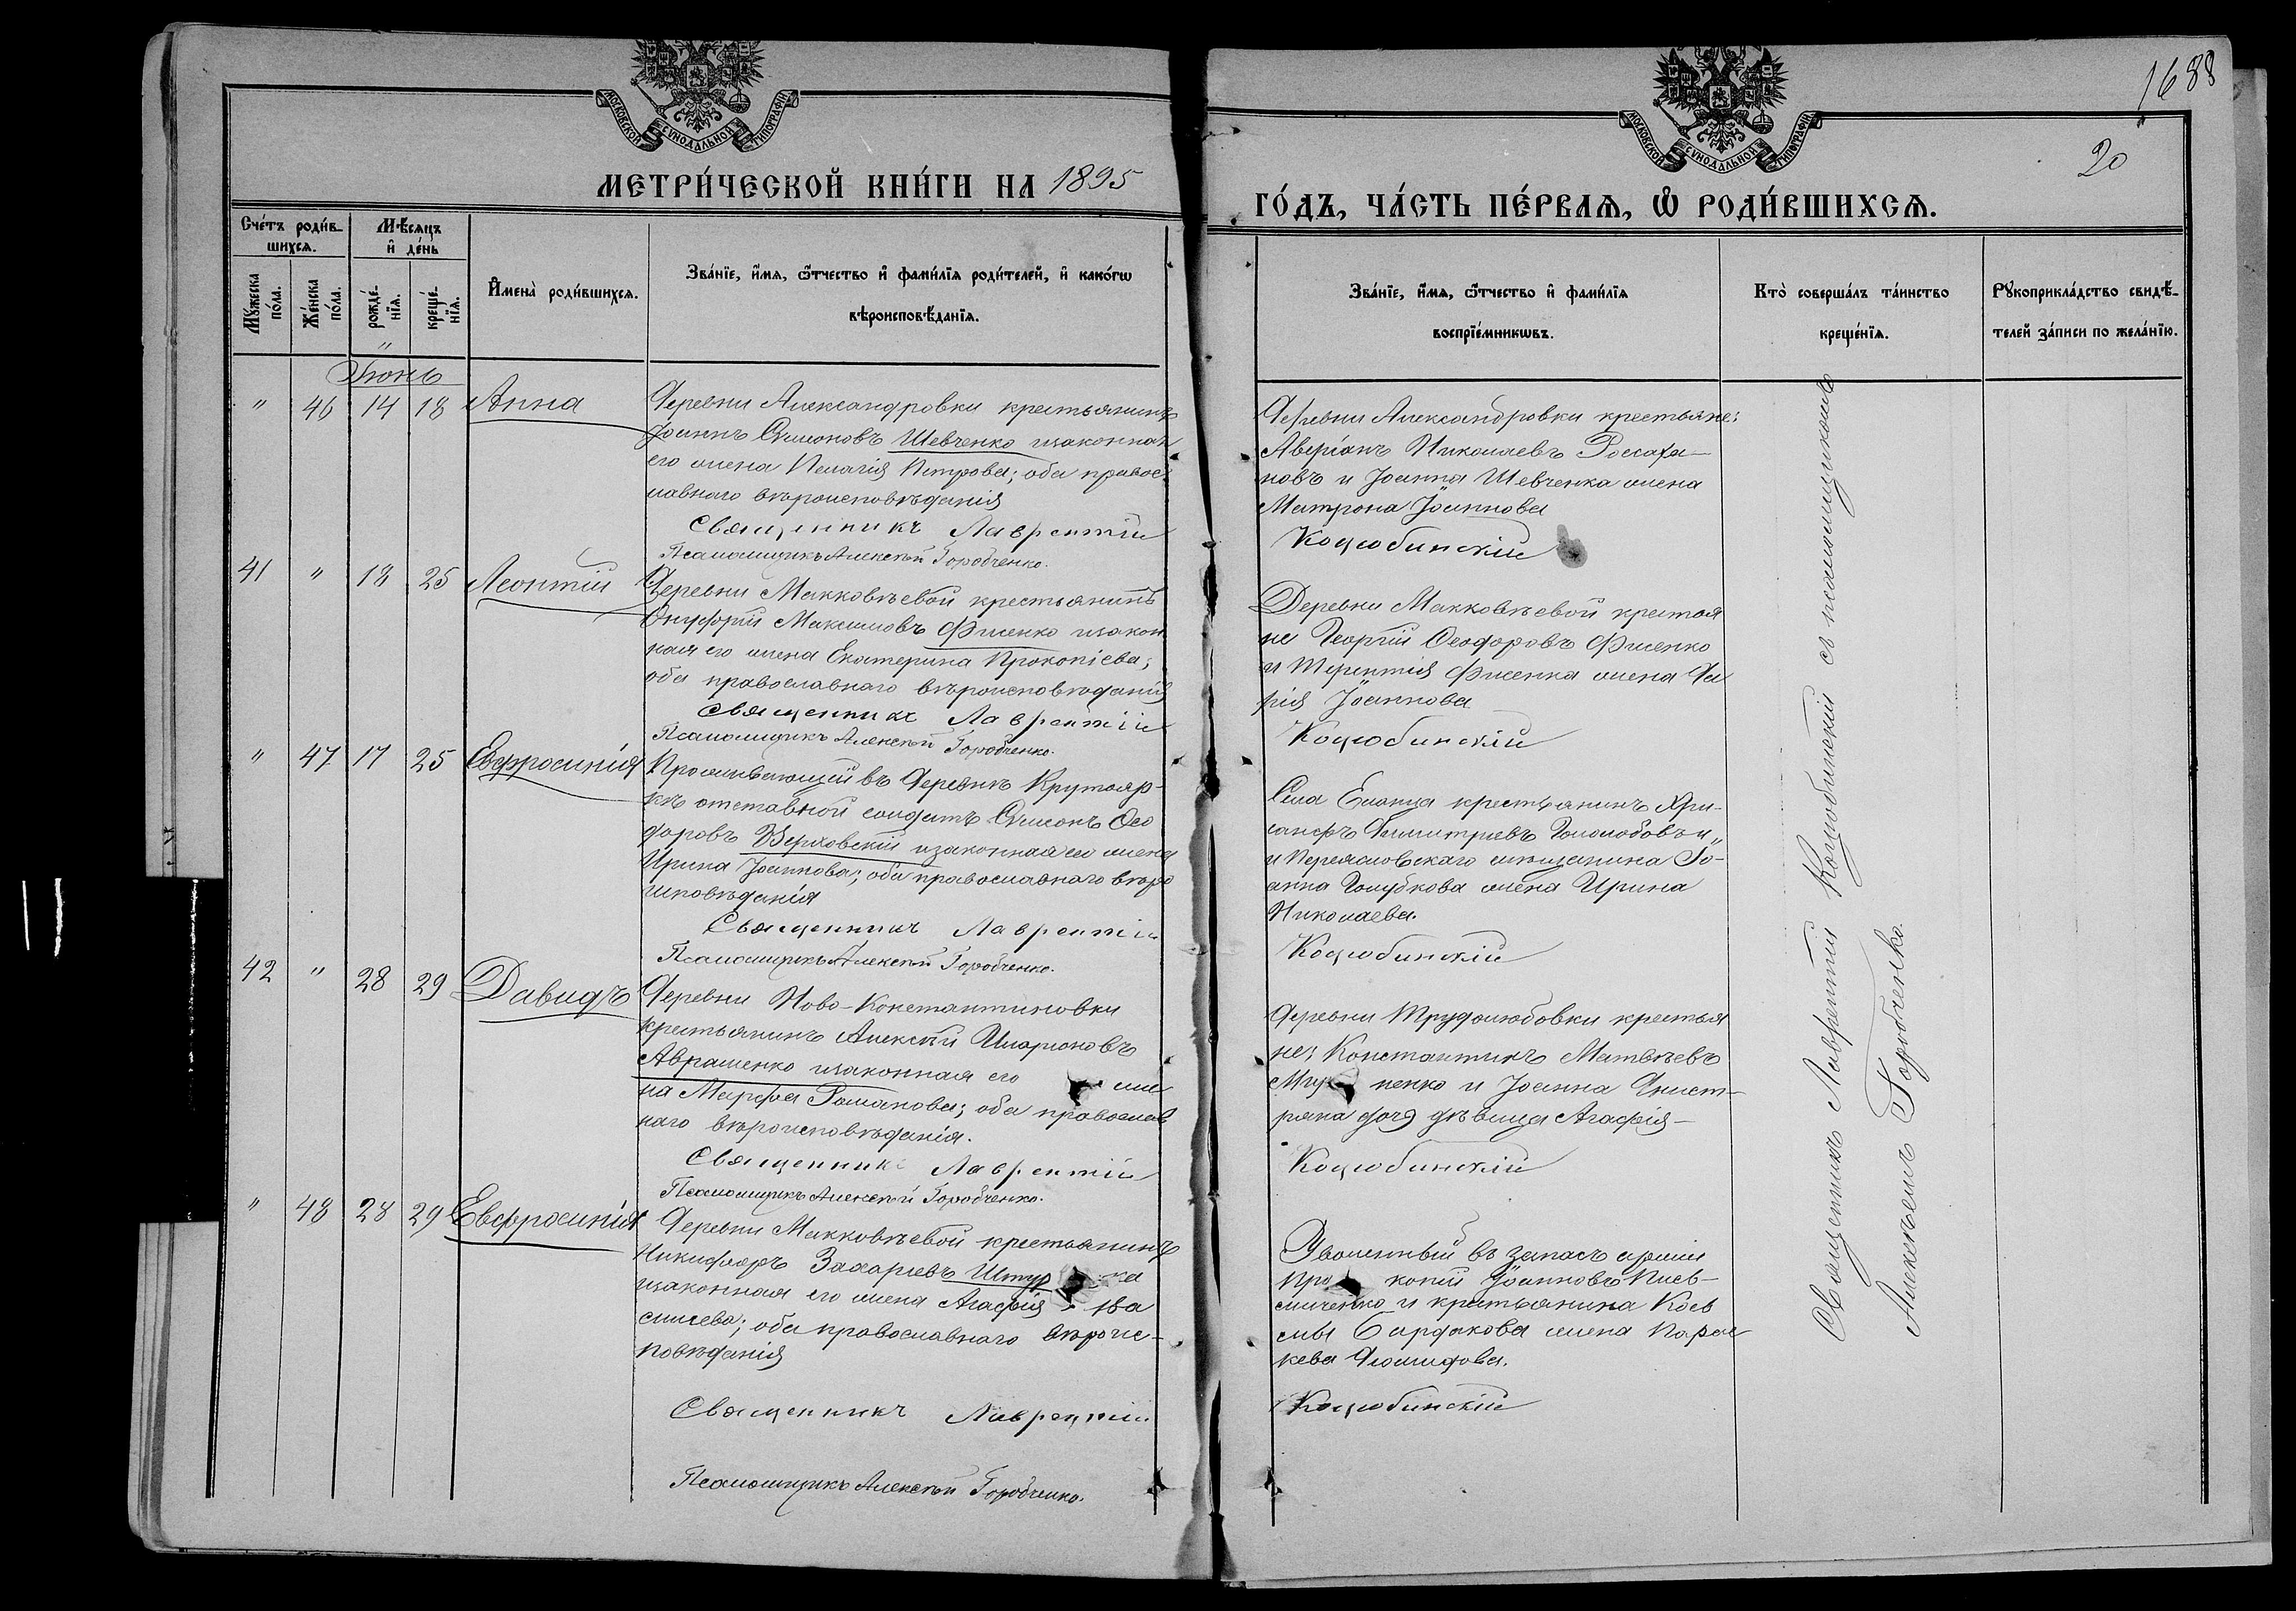 1688
20
МОСКОВСКОЙ СУНОДАЛЬНОЙ ТИПОГРАФІИ
МОСКОВСКОЙ СУНОДАЛЬНОЙ ТИПОГРАФІИ
МЕТРИ́ЧЕСКОЙ КНИ́ГИ НА 1895
ГО́ДЪ, ЧА́СТЬ ПЕ́РВАѦ, Ѡ҆ РОДИ́ВШИХСѦ.
Сче́тъ роди́в-
шихсѧ.
Мѣ́сѧцъ
и҆ де́нь
Мꙋ́жеска
по́ла.
Же́нска
по́ла.
рожде́-
нїѧ.
креще́-
нїѧ.
И҆мена̀ роди́вшихсѧ.
Зва́нїе, и҆́мѧ, ѻ҆́тчество и҆ фами́лїѧ роди́телей, и҆ како́гѡ
вѣроисповѣ́данїѧ.
Зва́нїе, и҆́мѧ, ѻ҆́тчество и҆ фами́лїѧ
воспрїе́мникѡвъ.
Кто̀ соверша́лъ та́инство
креще́нїѧ.
Рꙋкоприкла́дство свидѣ́-
телей за́писи по жела́нїю.
Іюнь
" 46 14 18 Анна
Деревни Александровки крестьянинъ
Іоаннъ Симоновъ Шевченко изаконная
его жена Пелагія Петрова; оба правос-
лавнаго вѣроисповѣданія
Священникъ Лаврентій
Псаломщикъ Алексѣй Горобченко.
Деревни Александровки крестьяне:
Аверіанъ Николаевъ Россоха-
новъ и Іоанна Шевченка жена
Матрона Іоаннова
Коцюбинскій
41 " 18 25 Леонтій
Деревни Макковѣевой крестьянинъ
Онуфрій Максимовъ Фисенко изакон
ная его жена Екатерина Прокопіева;
оба православнаго вѣроисповѣданія
Священникъ Лаврентій
Псаломщикъ Алексѣй Горобченко.
Деревни Макковѣевой крестья
не Георгій Ѳеодоровъ Фисенко
и Терентія Фисенка жена Да
рія Іоаннова
Коцюбинскій
" 47 17 25 Евфросинія
Проживающій въ Деревнѣ Крутояр-
кѣ отставной солдатъ Симонъ Ѳео
доровъ Верховскій изаконная его жена
Ирина Іоаннова; оба православнаго вѣро
исповѣданія
Священникъ Лаврентій
Псаломщикъ Алексѣй Горобченко.
Села Еланца крестьянинъ Хри-
санфъ Димитріевъ и
и Переясловскаго мѣщанина Іо-
анна Голубкова жена Ирина
Николаева.
Коцюбинскій
42 " 28 29 Давидъ
Деревни Ново-Константиновки
крестьянинъ Алексѣй Иларіоновъ
Аврашенко изаконная его же
на Марфа Романова; оба православ
наго вѣроисповѣданія.
Священникъ Лаврентій
Псаломщикъ Алексѣй Горобченко.
Деревни Трудолюбовки крестья
не: Константинъ Матвѣевъ
ненко и Іоанна Днист-
ряна дочь дѣвица Агафія
Коцюбинскій
" 48 28 29 Евфросинія
Деревни Макковѣевой крестьянинъ
Никифоръ Захаріевъ
изаконная его жена Агафія
; оба православнаго вѣроис-
повѣданія
Священникъ Лаврентій
Псаломщикъ Алексѣй Горобченко.
Уволенный въ запасъ арміи
Про копій Іоанновъ Пись-
миченко и крестьянина Кось
мы Бардакова жена Парас
кева Діомидова.
Коцюбинскій
Священникъ Лаврентій Коцюбинскій съ псаломщикомъ
Алексѣемъ Горобченко.